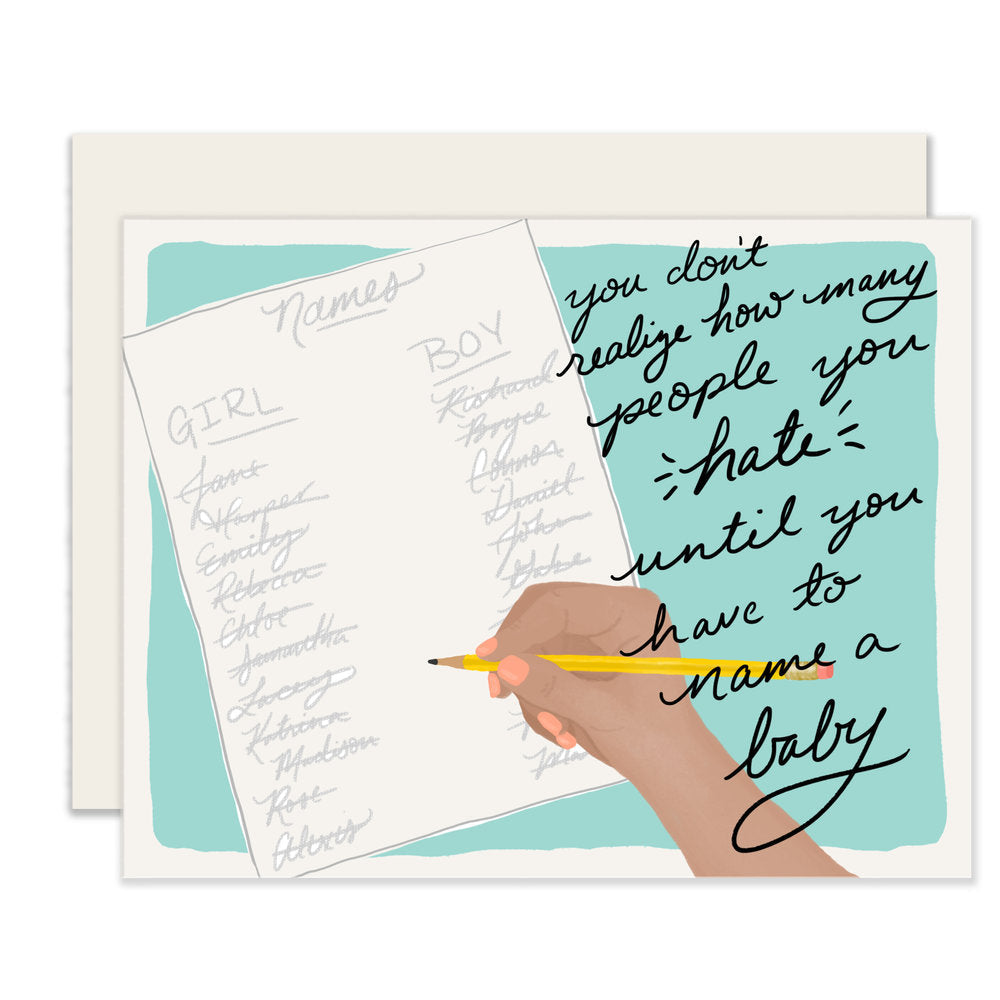 Names
GIRL
Jane
Harper
Emily
Rebecca
Chloe
Samantha
Lacey
Katrina
Madison
Rose
Alexis
BOY
Richard
Bryce
Connor
Daniel
John
you don't
realize how many
people you
hate
until you
have to
name a
baby